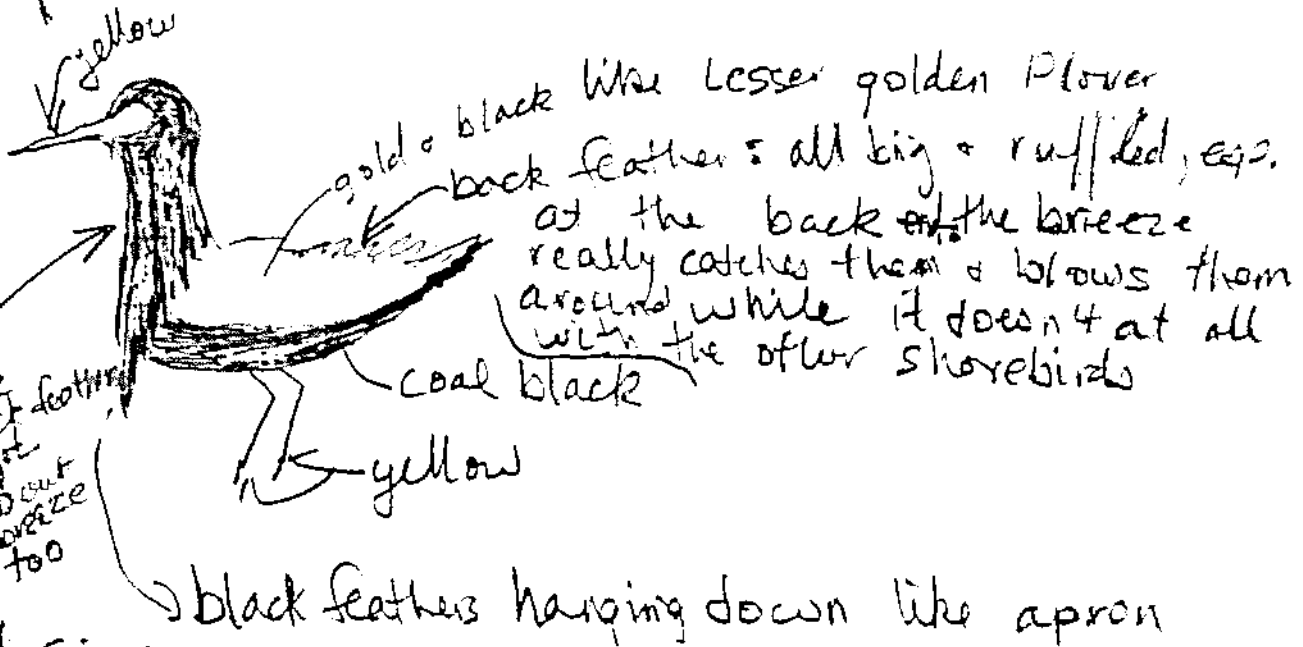 yellow
gold & black like Lesser golden Plover
back feather: all big & ruffled, esp.
at the back and the breeze
really catches them & blows them
around while it doesn't at all
with the other shorebirds
coal black
feathers
out
breeze
too
yellow
black feathers hanging down like apron